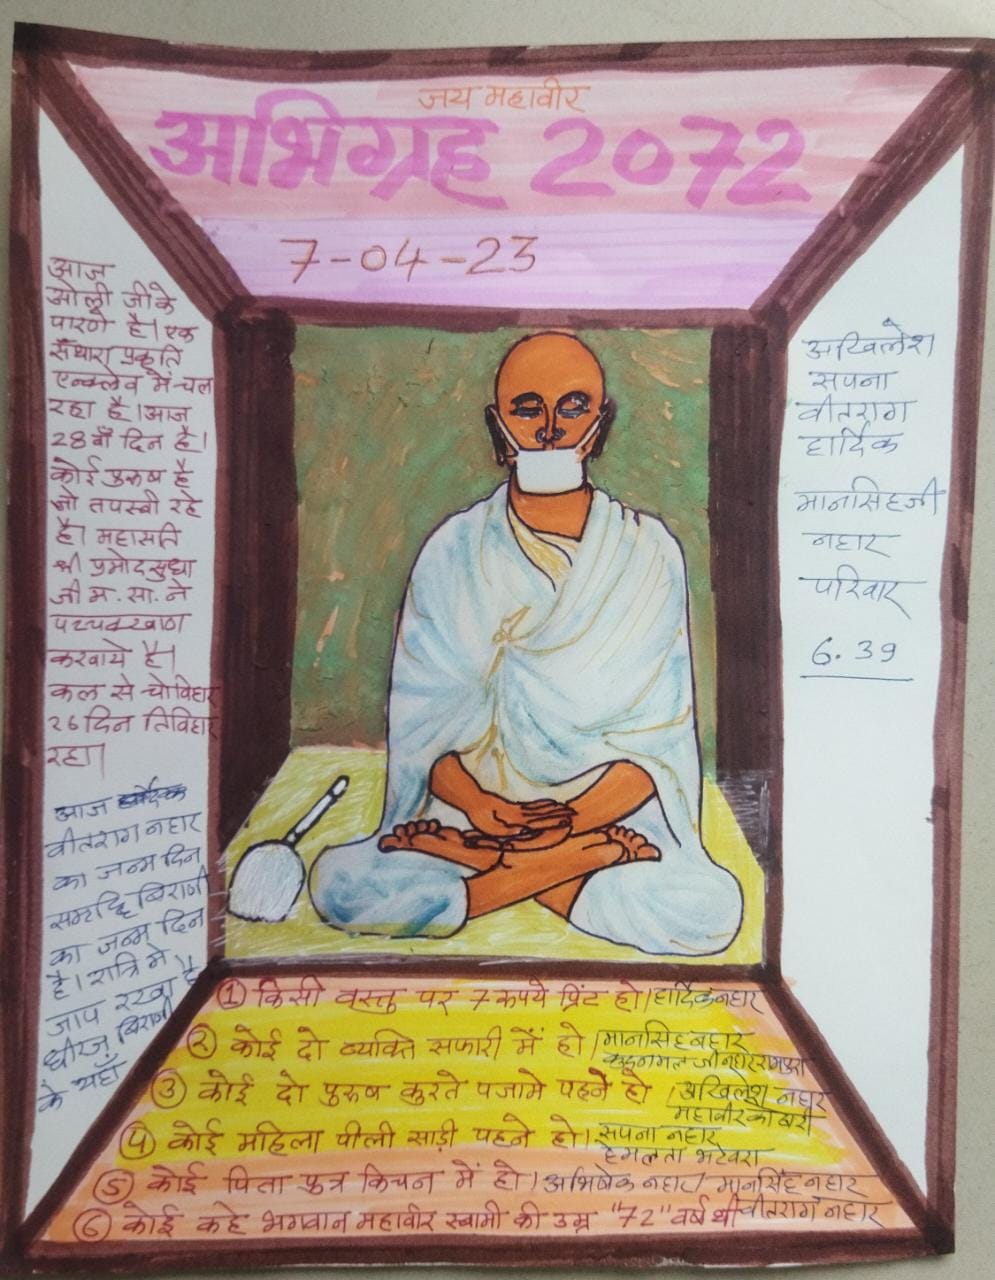 जय महावीर
अभिग्रह 2072
7-04-23
आज
ओली जी के
पारणे है। एक
संथारा प्रकृति
एन्क्लेव में चल
रहा है। आज
28 वाँ दिन है।
कोई पुरुष है
जो तपस्वी रहे
है। महासति
श्री प्रमोदसुधा
जी म. सा. ने
पच्चक्खाण
करवाये है।
कल से चोविहार
26 दिन तिविहार
रहा।
आज
वीतराग नहार
का जन्म दिन
समृद्धि बिराणी
का जन्म दिन
है। रात्रि में
जाप रखा है
धीरज बिराणी
के यहाँ
अखिलेश
सपना
वीतराग
हार्दिक
मानसिहजी
नहार
परिवार
6.39
① किसी वस्तु पर 7 रुपये प्रिंट हो। हार्दिक नहार
② कोई दो व्यक्ति सफारी में हो। मानसिह नहार
जी नहार रामपुरा
③ कोई दो पुरुष कुरते पजामे पहने हो। अखिलेश नहार
महावीर कोठारी
④ कोई महिला पीली साड़ी पहने हो। सपना नहार
हेमलता भटेवरा
⑤ कोई पिता पुत्र किचन में हो। अभिषेक नहार/ मानसिंह नहार
⑥ कोई कहे भगवान महावीर स्वामी की उम्र "72" वर्ष थी वीतराग नहार